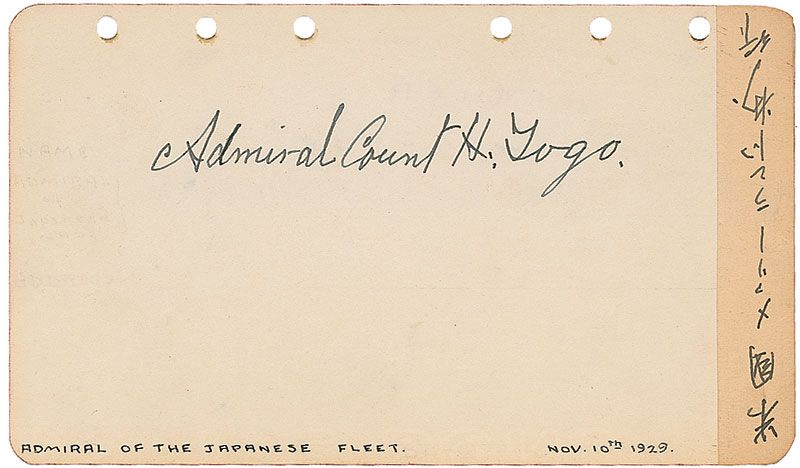 Admiral Count H. Togo.
米國メリーランド州
ADMIRAL OF THE JAPANESE FLEET.
NOV. 10th 1929.